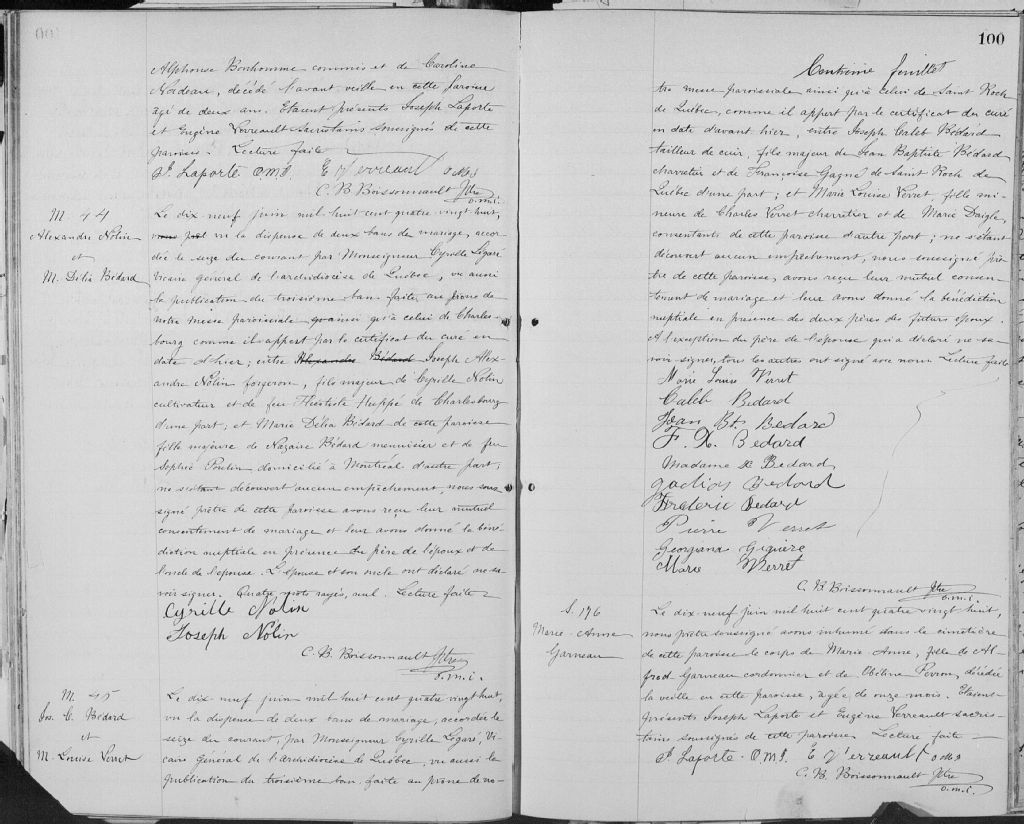 Alphonse Bonhomme commis et de Caroline
Nadeau, décédé l'avant veille en cette paroisse
agé de deux ans. Etaient présents Joseph Laporte
et Eugène Verreault sacristains soussignés de cette
paroisse. Lecture faite
J. Laporte O.M.I. E Verreault o m i
C. B. Boissonnault Ptre
o.m.i.
M 44
Alexandre Nolin
et
M. Délia Bédard
Le dix neuf juin mil huit cent quatre vingt huit,
vu la dispense de deux bans de mariage, accor-
dée le seize du courant par Monseigneur Cyrille Légaré
Vicaire général de l'archidiocèse de Québec, vu aussi
la publication du troisième ban faite au prône de
notre messe paroissiale qu ainsi qu'à celui de Charles-
bourg comme il appert par le certificat du curé en
date d'hier; entre Alexandre Bédard Joseph Alex-
andre Nolin forgeron, fils majeur de Cyrille Nolin
cultivateur et de feu Huppé de Charlesbourg
d'une part, et Marie Délia Bédard de cette paroisse
fille majeure de Nazaire Bédard menuisier et de feu
Sophie Poulin domicilié à Montréal d'autre part,
ne découvert aucun empêchement, nous sous-
signé prêtre de cette paroisse avons reçu leur mutuel
consentement de mariage et leur avons donné la béné-
diction nuptiale en présence du père de l'époux et de
l'oncle de l'épouse. L'épouse et son oncle ont déclaré ne sa-
voir signer. Quatre mots rayés, nul. Lecture faite
Cyrille Nolin
Joseph Nolin
C. B. Boissonnault Ptre
o.m.i.
M 45
Jos. C. Bédard
et
M. Louise Verret
Le dix neuf juin mil huit cent quatre vingt huit,
vu la dispense de deux bans de mariage, accordée le
seize du courant, par Monseigneur Cyrille Légaré, Vi-
caire général de l'archidiocèse de Québec, vu aussi la
publication du troisième ban faite au prône de no-
100
Centième feuillet
tre messe paroissiale ainsi qu'à celui de Saint Roch
de Québec, comme il appert par le certificat du curé
en date d'avant hier, entre Joseph Caleb Bédard
tailleur de cuir, fils majeur de Jean Baptiste Bédard
charretier et de Françoise Gagné de Saint Roch de
Québec d'une part; et Marie Louise Verret, fille mi-
neure de Charles Verret charretier et de Marie Daigle,
consentants de cette paroisse d'autre part; ne s'étant
découvert aucun empêchement, nous soussigné prê-
tre de cette paroisse, avons reçu leur mutuel consen-
tement de mariage et leur avons donné la bénédiction
nuptiale en présence des deux pères des futurs époux.
A l'exception du père de l'épouse qui a déclaré ne sa-
voir signer, tous les autres ont signé avec nous. Lecture faite
Marie Louise Verret
Caleb Bedard
Jean Bt. Bedard
F. X. Bedard
Madame X Bedard
Bedard
Frederic Bedard
Pierre Verret
Georgana Giguere
Marie Verret
C. B. Boissonnault Ptre
o.m.i.
S. 176
Marie-Anne
Garneau
Le dix neuf juin mil huit cent quatre vingt huit,
nous prêtre soussigné avons inhumé dans le cimetière
de cette paroisse le corps de Marie Anne, fille de Al-
fred Garneau cordonnier et de Obéline Piron, décédée
la veille en cette paroisse, agée de onze mois. Etaient
présents Joseph Laporte et Eugène Verreault sacris-
tains soussignés de cette paroisse Lecture faite
J. Laporte. O.M.I. E Verreault o m i
C. B. Boissonnault Ptre
o.m.i.